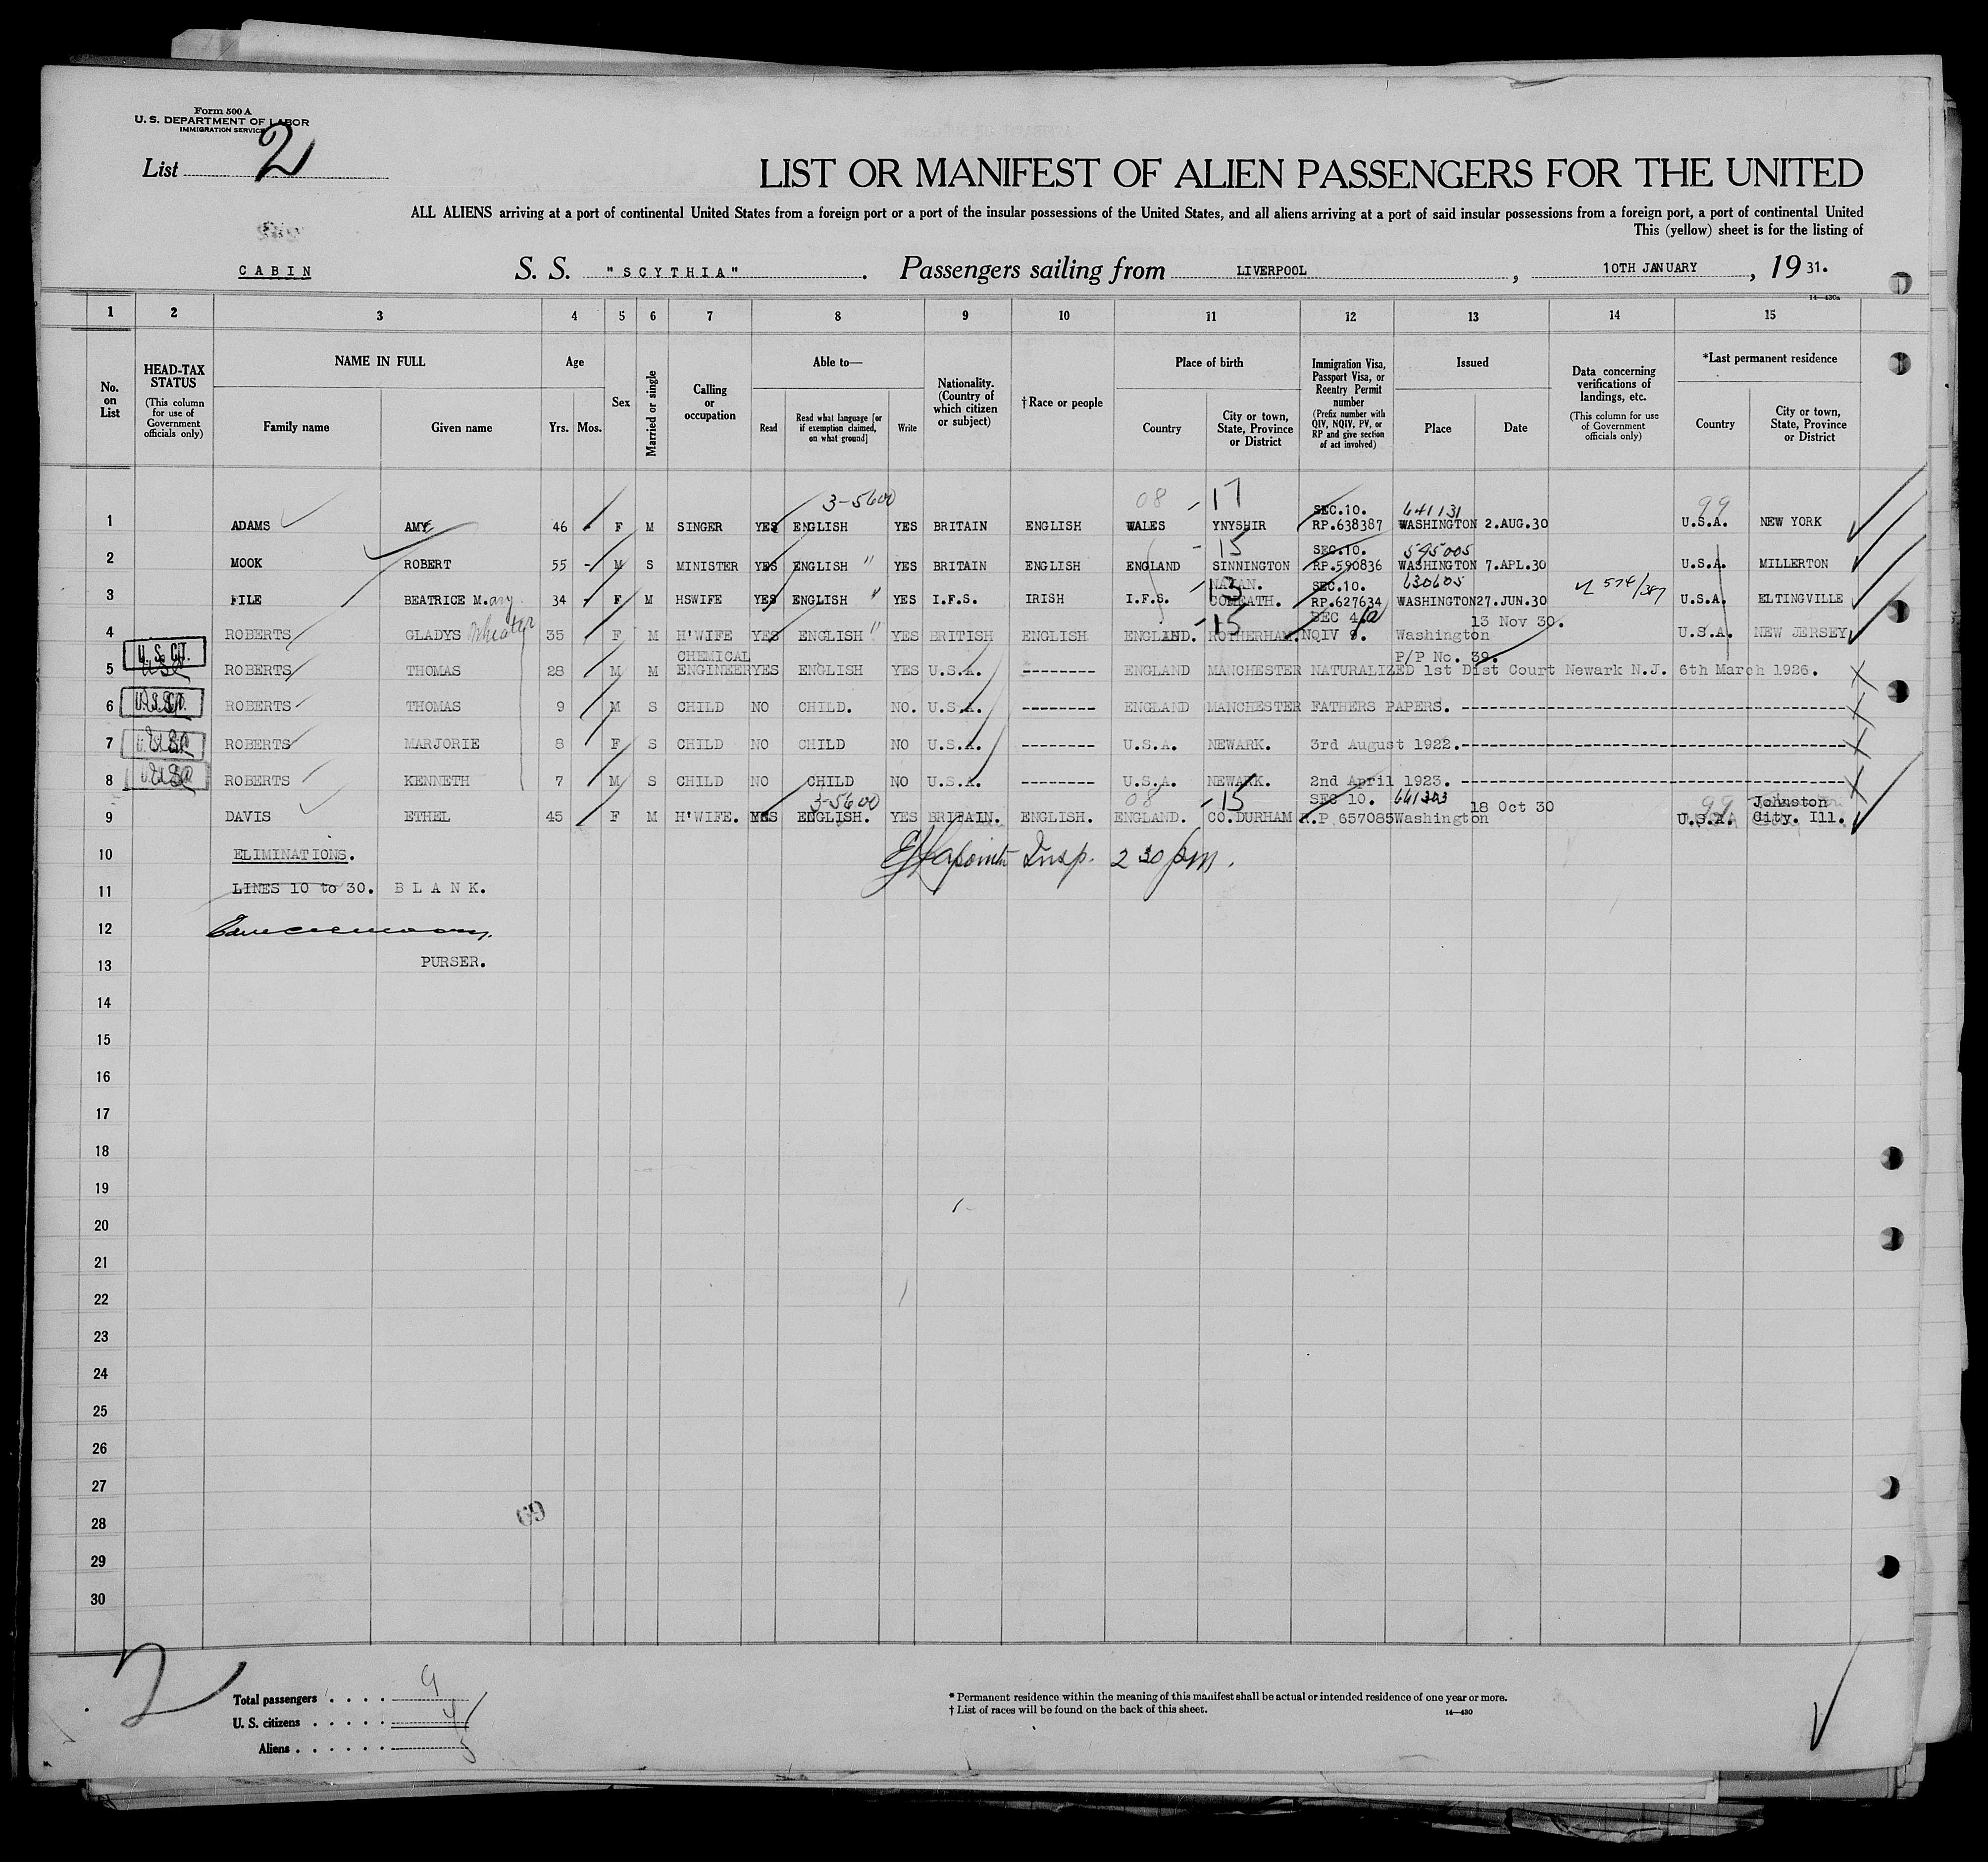 Form 500 A
U. S. DEPARTMENT OF LABOR
IMMIGRATION SERVICE
List 2
LIST OR MANIFEST OF ALIEN PASSENGERS FOR THE UNITED
ALL ALIENS arriving at a port of continental United States from a foreign port or a port of the insular possessions of the United States, and all aliens arriving at a port of said insular possessions from a foreign port, a port of continental United
This (yellow) sheet is for the listing of
CABIN S. S. "SCYTHIA". Passengers sailing from LIVERPOOL, 10TH JANUARY, 1931.
14—430a
1 2 3 4 5 6 7 8 9 10 11 12 13 14 15
No. on List
HEAD-TAX STATUS (This column for use of Government officials only)
NAME IN FULL Family name Given name
Age Yrs. Mos.
Sex
Married or single
Calling or occupation
Able to— Read Read what language [or if exemption claimed, on what ground] Write
Nationality. (Country of which citizen or subject)
†Race or people
Place of birth Country City or town, State, Province or District
Immigration Visa, Passport Visa, or Reentry Permit number (Prefix number with QIV, NQIV, PV, or RP and give section of act involved)
Issued Place Date
Data concerning verifications of landings, etc. (This column for use of Government officials only)
*Last permanent residence Country City or town, State, Province or District
3-5600 08 -17 SEC.10. 641131 99
1 ADAMS AMY 46 - F M SINGER YES ENGLISH YES BRITAIN ENGLISH WALES YNYSHIR RP.638387 WASHINGTON 2.AUG.30 U.S.A. NEW YORK
-15 SEC.10. 595005
2 MOOK ROBERT 55 - M S MINISTER YES ENGLISH " YES BRITAIN ENGLISH ENGLAND SINNINGTON RP.590836 WASHINGTON 7.APL.30 U.S.A. MILLERTON
-13 SEC.10. 630605
3 FILE BEATRICE M.ary 34 - F M HSWIFE YES ENGLISH " YES I.F.S. IRISH I.F.S. COMEATH. RP.627634 WASHINGTON 27.JUN.30 U.S.A. ELTINGVILLE
-15 SEC 4 13 Nov 30.
4 ROBERTS GLADYS 35 F M H'WIFE YES ENGLISH " YES BRITISH ENGLISH ENGLAND. ROTHERHAM. NQIV 9. Washington U.S.A. NEW JERSEY
U. S. CIT. CHEMICAL P/P No. 39.
5 ROBERTS THOMAS 28 M M ENGINEER YES ENGLISH YES U.S.A. ENGLAND MANCHESTER NATURALIZED 1st Dist Court Newark N.J. 6th March 1926.
6 ROBERTS THOMAS 9 M S CHILD NO CHILD. NO. U.S.A. -------- ENGLAND MANCHESTER FATHERS PAPERS. --------
7 ROBERTS MARJORIE 8 F S CHILD NO CHILD NO U.S.A. -------- U.S.A. NEWARK. 3rd August 1922.--------
8 ROBERTS KENNETH 7 M S CHILD NO CHILD NO U.S.A. -------- U.S.A. NEWARK. 2nd April 1923. --------
3-5600 08 -15 SEC 10. 18 Oct 30 99 Johnston
9 DAVIS ETHEL 45 F M H'WIFE. YES ENGLISH. YES BRITAIN. ENGLISH. ENGLAND. CO.DURHAM R.P 657085 Washington U.S.A. City. Ill.
10 ELIMINATIONS. Insp. 2 30 pm.
11 LINES 10 to 30. BLANK.
12
13 PURSER.
14
15
16
17
18
19
20
21
22
23
24
25
26
27
28
29
30
69
2
Total passengers . . . . 9
U. S. citizens . . . . . 4
Aliens . . . . . . 5
* Permanent residence within the meaning of this manifest shall be actual or intended residence of one year or more.
† List of races will be found on the back of this sheet.
14—430